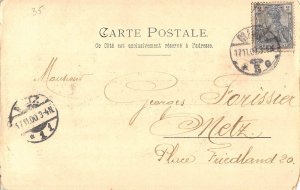 35
CARTE POSTALE.
Ce Côté est exclusivement réservé à l'adresse.
17.11.00.3-4N
Monsieur
Georges Forissier
17.11.00.3-4N
Metz,
Place Friedland 20.